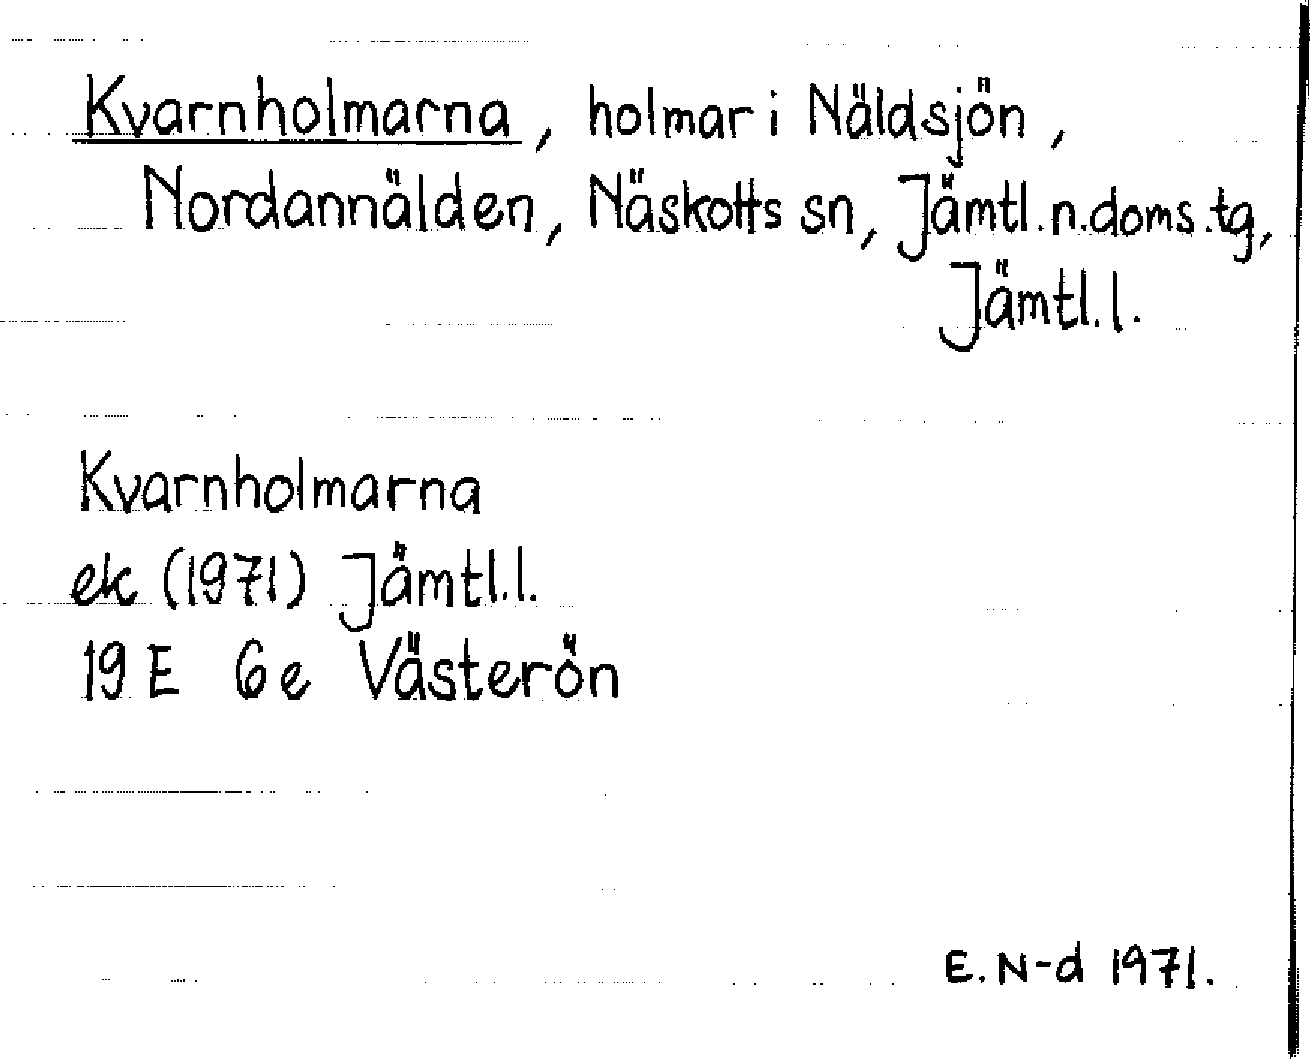 Kvarnholmarna, holmar i Näldsjön,
Nordannälden, Näskotts sn, Jämtl.n.doms.tg,
Jämtl.l.
Kvarnholmarna
ek (1971) Jämtl.l.
19 E 6e Västerön
E. N-d 1971.